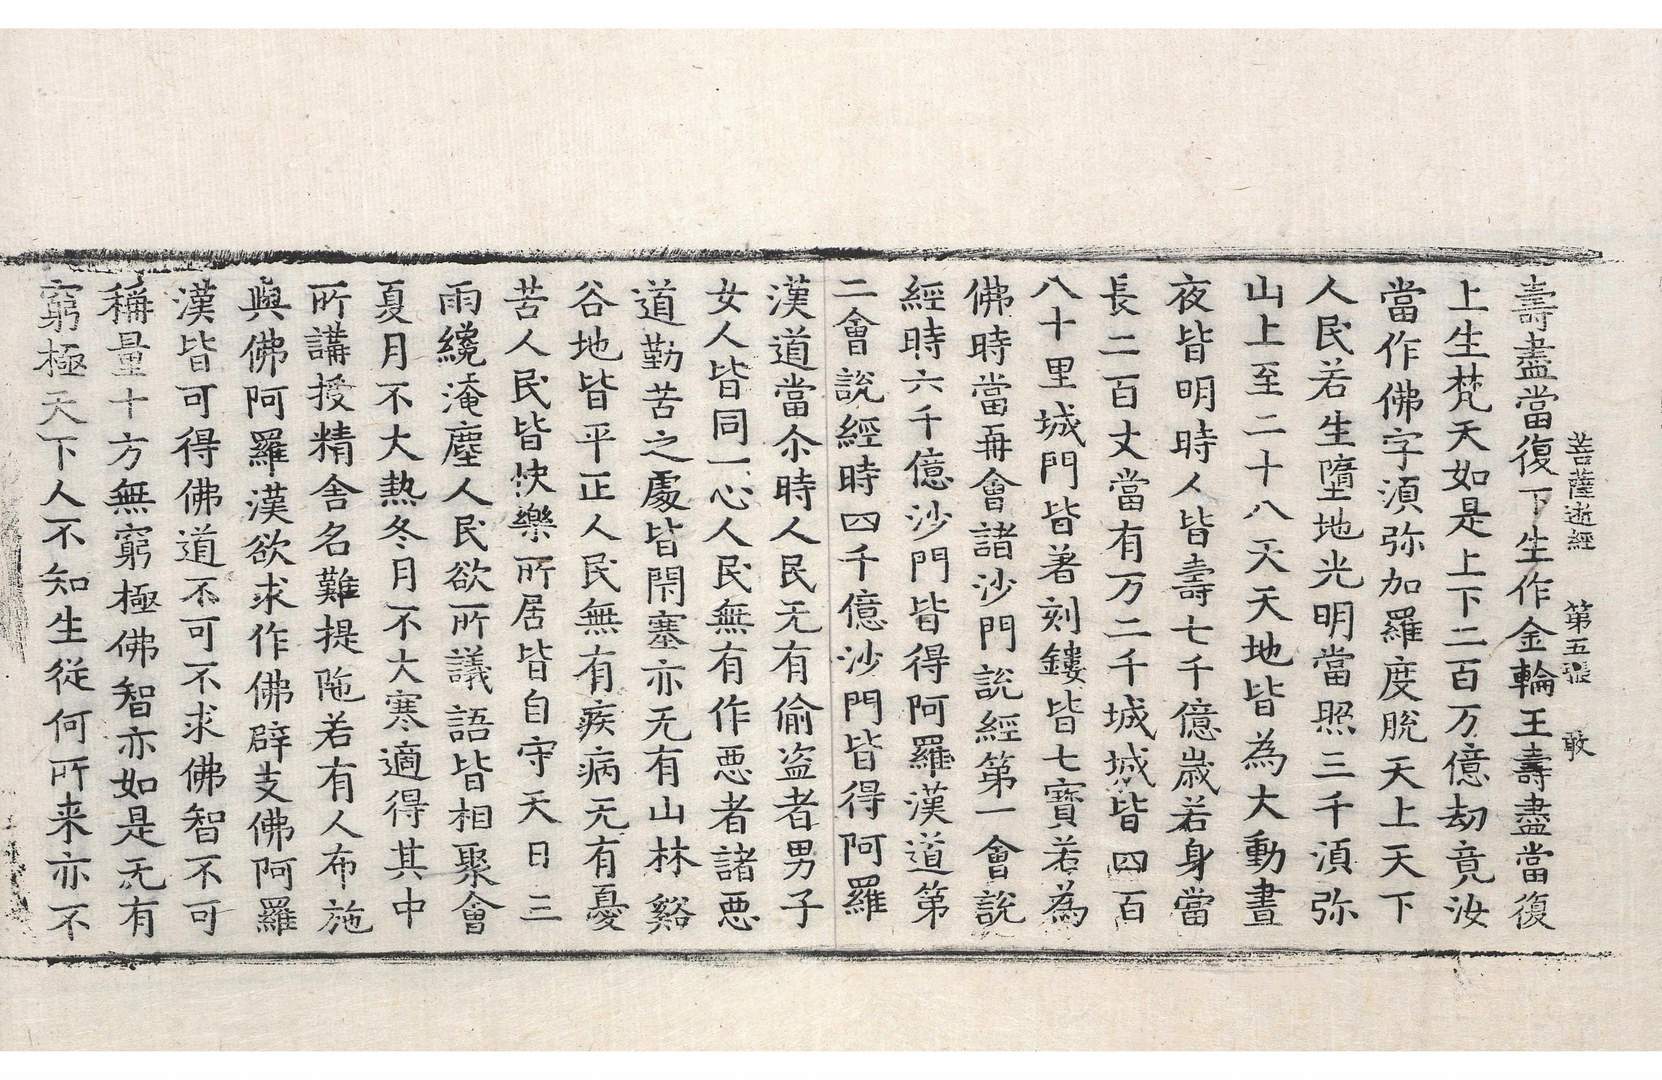 菩薩逝經 第五張 敢
壽盡當復下生作金輪王壽盡當復
上生梵天如是上下二百万億劫竟汝
當作佛字湏弥加羅度脫天上天下
人民若生墮地光明當照三千湏弥
山上至二十八天天地皆為大動晝
夜皆明時人皆壽七千億嵗若身當
長二百丈當有万二千城城皆四百
八十里城門皆著刻鏤皆七寶若為
佛時當再會諸沙門說經第一會說
經時六千億沙門皆得阿羅漢道第
二會說經時四千億沙門皆得阿羅
漢道當尒時人民无有偷盗者男子
女人皆同一心人民無有作悪者諸悪
道勤苦之處皆閇塞亦无有山林谿
谷地皆平正人民無有疾病无有憂
苦人民皆快樂所居皆自守天日三
雨纔淹塵人民欲所議語皆相聚會
夏月不大熱冬月不大寒適得其中
所講授精舍名難提陁若有人布施
與佛阿羅漢欲求作佛辟支佛阿羅
漢皆可得佛道不可不求佛智不可
稱量十方無窮極佛智亦如是无有
窮極天下人不知生從何所来亦不